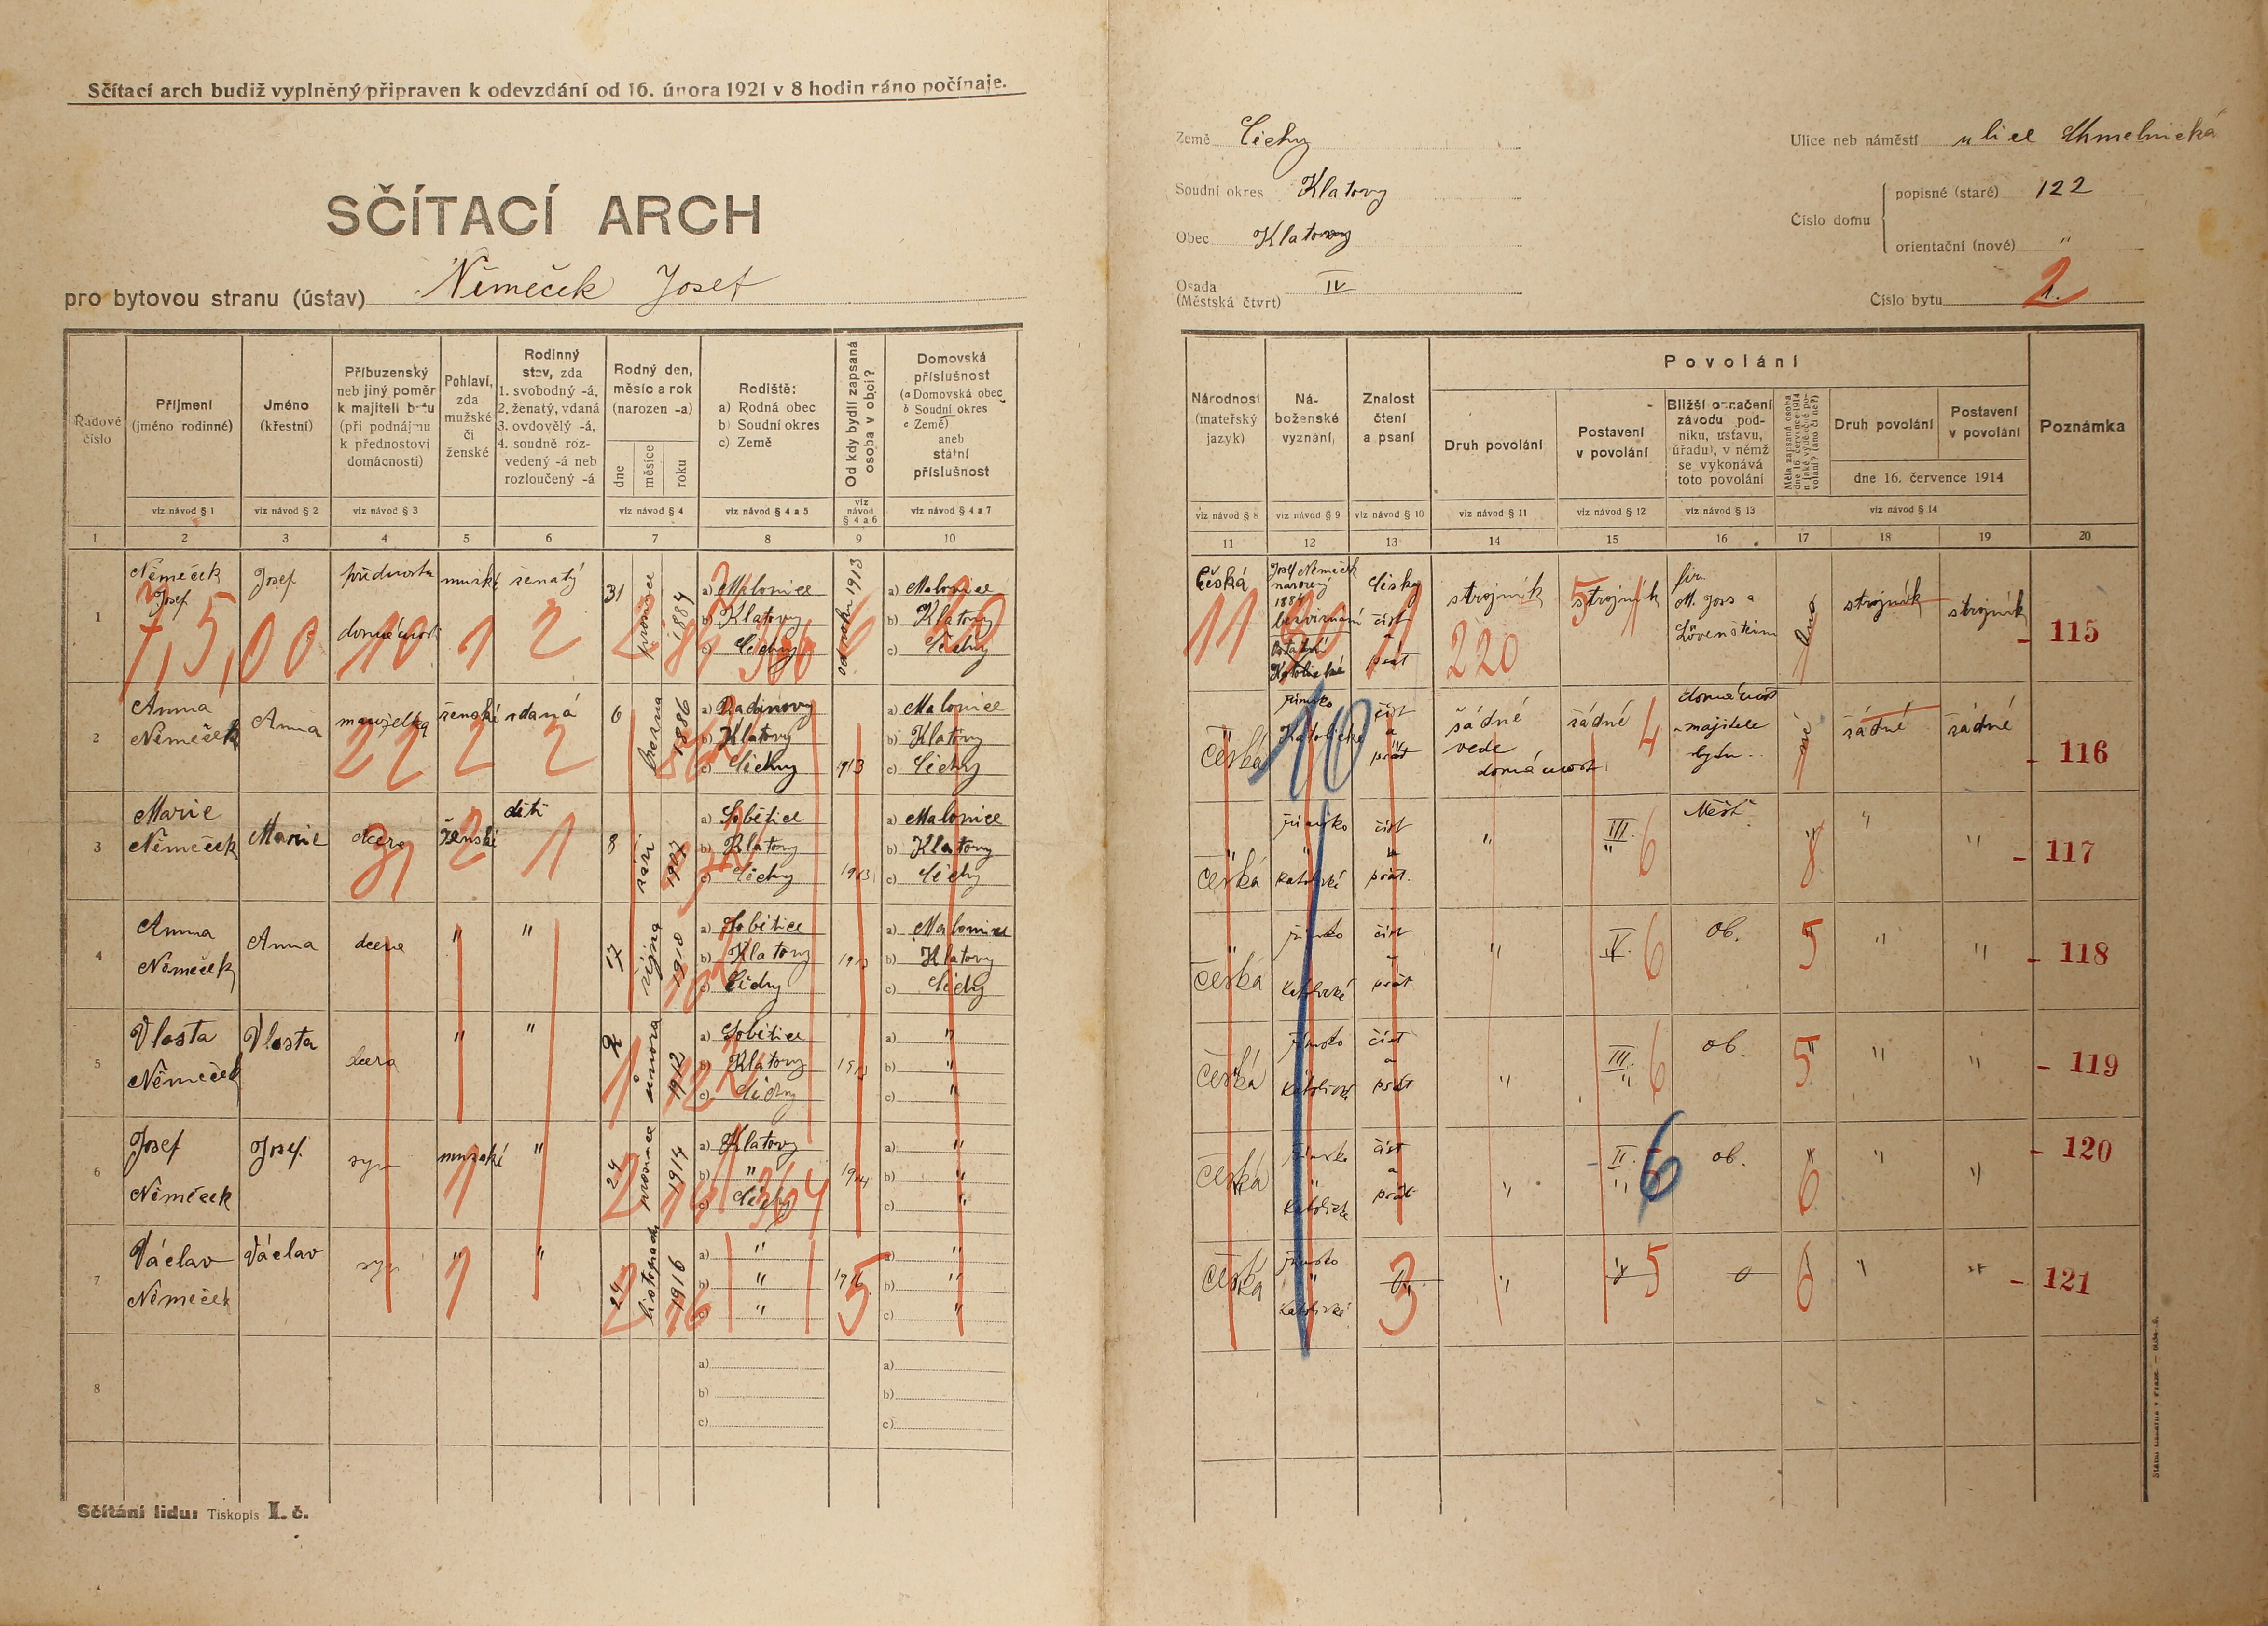 Sčítací arch budiž vyplněný připraven k odevzdání od 16. února 1921 v 8 hodin ráno počínaje.
SČÍTACÍ ARCH
pro bytovou stranu (ústav) Němeček Josef
Země Čechy
Soudní okres Klatovy
Obec Klatovy
Osada (Městská čtvrt) IV
Ulice neb náměstí ulice Chmelnická
Číslo domu
popisné (staré) 122
orientační (nové) "
Číslo bytu 2
Řadové číslo
Příjmení (jméno rodinné)
Jméno (křestní)
Příbuzenský neb jiný poměr k majiteli bytu (při podnájmu k přednostovi domácnosti)
Pohlaví, zda mužské či ženské
Rodinný stav, zda 1. svobodný -á, 2. ženatý, vdaná 3. ovdovělý -á, 4. soudně rozvedený -á neb rozloučený -á
Rodný den, měsíc a rok (narozen -a)
dne měsíce roku
Rodiště: a) Rodná obec b) Soudní okres c) Země
Od kdy bydlí zapsaná osoba v obci?
Domovská příslušnost (a Domovská obec b Soudní okres c Země) aneb státní příslušnost
viz návod § 1 viz návod § 2 viz návod § 3 viz návod § 4 viz návod § 4 a 5 viz návod § 4 a 6 viz návod § 4 a 7
1 2 3 4 5 6 7 8 9 10
1 Němeček Josef Josef přednosta domácnosti mužské ženatý 31 prosince 1884 a) Malonice b) Klatovy c) Čechy od roku 1913 a) Malonice b) Klatovy c) Čechy
7,5,00 10 1 2 2 84
2 Anna Němeček Anna manželka ženské vdaná 6 března 1886 a) Radinovy b) Klatovy c) Čechy 1913 a) Malonice b) Klatovy c) Čechy
22 2 2 86
3 Marie Němeček Marie dcera ženské dítě 8 září 1907 a) Sobětice b) Klatovy c) Čechy 1913 a) Malonice b) Klatovy c) Čechy
31 2 1
4 Anna Němeček Anna dcera " " 17 října 1910 a) Sobětice b) Klatovy c) Čechy 1913 a) Malonice b) Klatovy c) Čechy
5 Vlasta Němeček Vlasta dcera " " 2 února 1912 a) Sobětice b) Klatovy c) Čechy 1913 a) " b) " c) "
1 12
6 Josef Němeček Josef. syn mužské " 24 prosince 1914 a) Klatovy b) " c) Čechy 1914 a) " b) " c) "
1 2 14 364
7 Václav Němeček Václav syn " " 24 listopadu 1916 a) " b) " c) " 1916 a) " b) " c) "
1 2 16 5
8 a) b) c) a) b) c)
Sčítání lidu: Tiskopis I. č.
Národnost (mateřský jazyk)
Náboženské vyznání,
Znalost čtení a psaní
Povolání
Druh povolání
Postavení v povolání
Bližší označení závodu podniku, ústavu, úřadu), v němž se vykonává toto povolání
Měla zapsaná osoba dne 16. července 1914 nějaké výdělečné povolání? (ano či ne?)
Druh povolání
Postavení v povolání
dne 16. července 1914
Poznámka
viz návod § 8 viz návod § 9 viz návod § 10 viz návod § 11 viz návod § 12 viz návod § 13 viz návod § 14
11 12 13 14 15 16 17 18 19 20
česká Josef Němeček narozený 1884 bezvyznání ostatní Katolické česky číst a psát strojník strojník fir. M. Joss a Lövenstein ano strojník strojník 115
11 1 220 5
česká římsko Katolické číst a psát žádné vede domácnost žádné domácnost majitele bytu.. né žádné žádné 116
10 4
" česká římsko " katolické číst a psát. " III. " Měšť. " " " 117
6 8
" česká římsko katolické číst a psát " V. ob. " " " 118
6 5
česká římsko katolické číst a psát " III. " ob. " " " 119
6 5
česká římsko " katolické číst a psát " II. " ob. " " " 120
6 6
česká římsko " katolické " " 0 " " 121
3 5 6